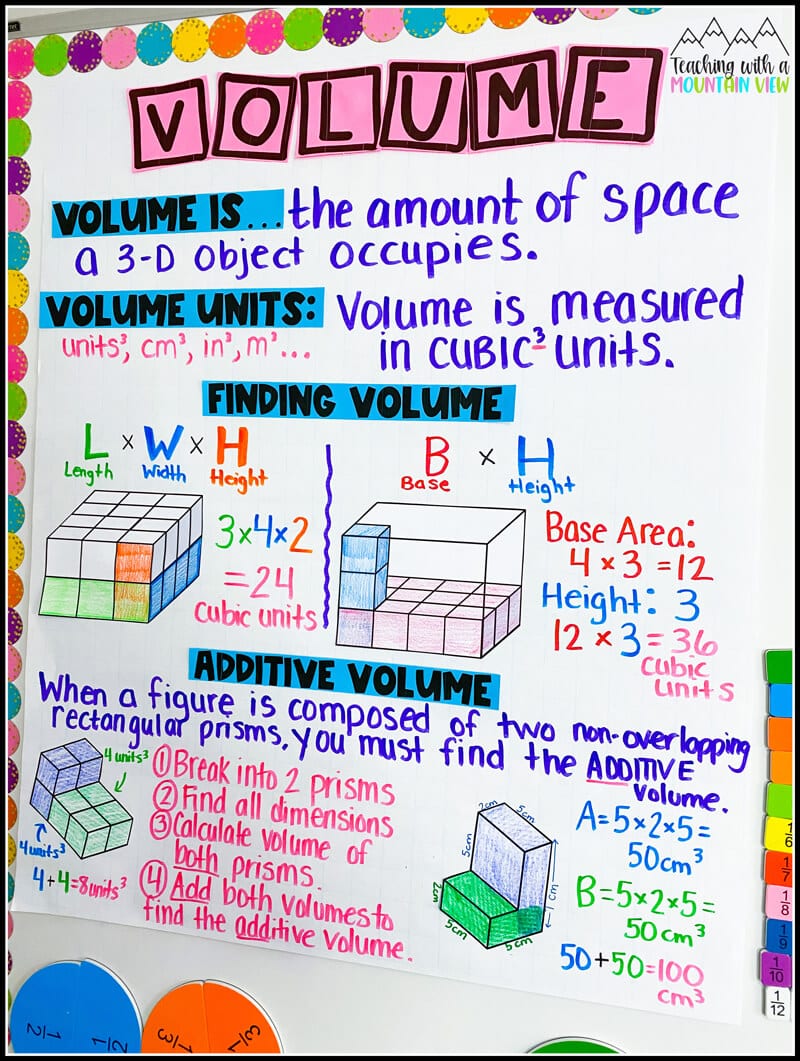 Teaching with a
MOUNTAIN VIEW
VOLUME
VOLUME IS... the amount of space
a 3-D object occupies.
VOLUME UNITS: Volume is measured
units³, cm³, in³, m³... in CUBIC³ units.
FINDING VOLUME
L × W × H
Length Width Height
3×4×2
=24
cubic units
B × H
Base Height
Base Area:
4 × 3 = 12
Height: 3
12 × 3 = 36
cubic
units
ADDITIVE VOLUME
When a figure is composed of two non-overlapping
rectangular prisms, you must find the ADDITIVE
volume.
4 units³
4 units³
4+4=8units³
① Break into 2 prisms
② Find all dimensions
③ Calculate volume of
both prisms.
④ Add both volumes to
find the additive volume.
2cm
5cm
5cm
2cm
5cm
5cm
A=5×2×5=
50cm³
B=5×2×5=
50cm³
50+50=100
cm³
1/2
1/2
1/3
1/3
1/6
1/7
1/8
1/9
1/10
1/12